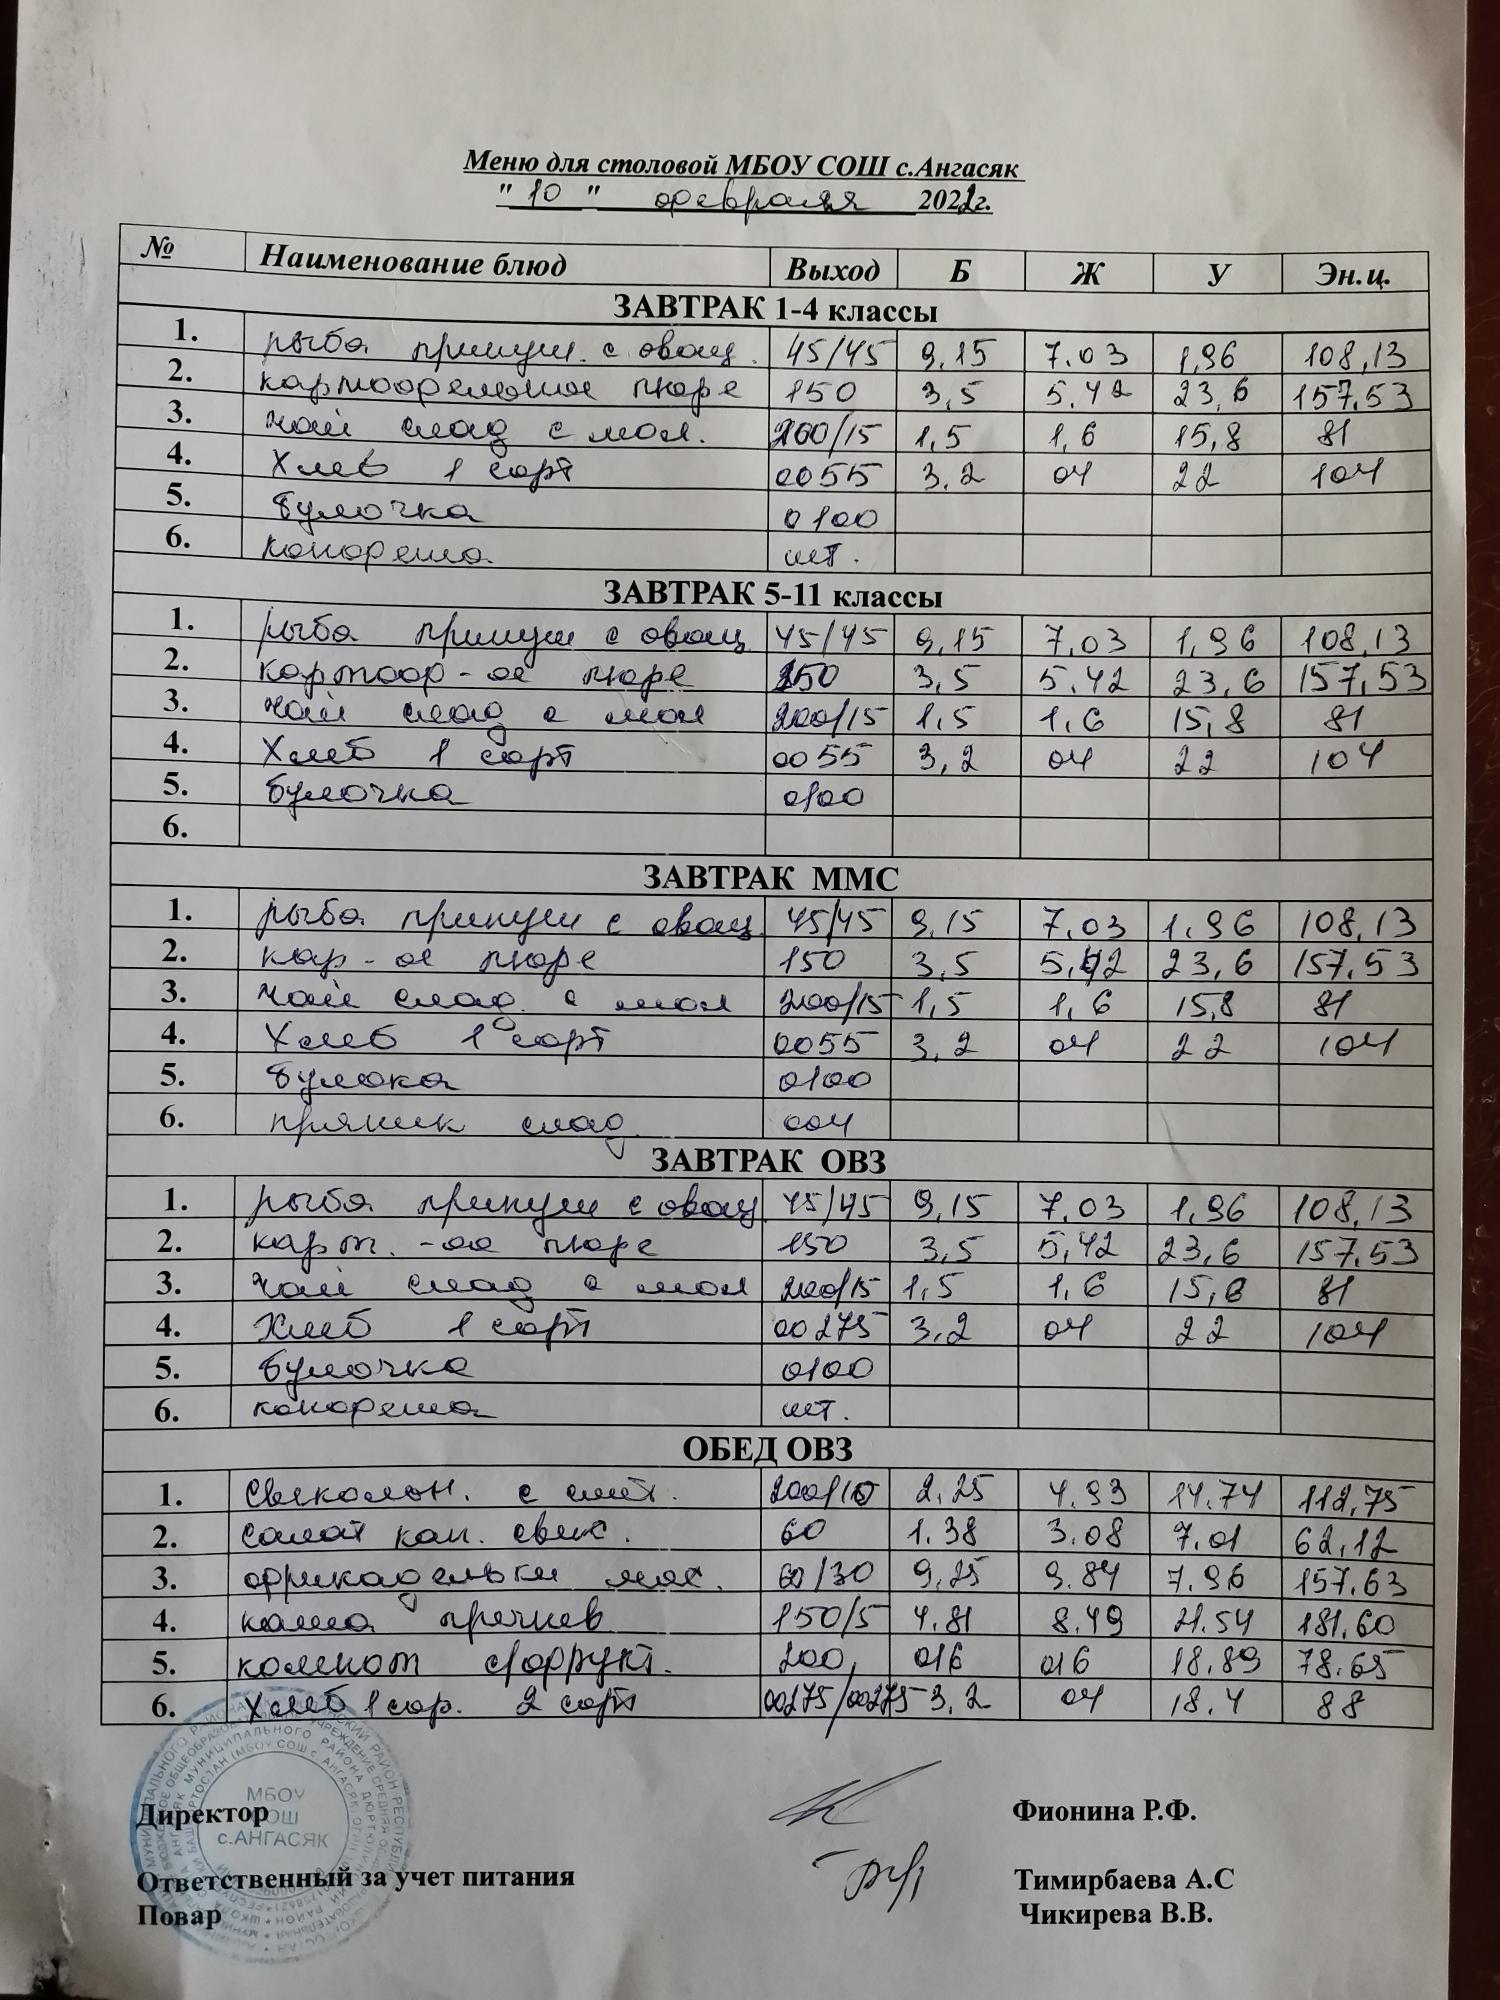 Меню для столовой МБОУ СОШ с.Ангасяк
" 10 " февраля 2022г.
№ Наименование блюд Выход Б Ж У Эн.ц.
ЗАВТРАК 1-4 классы
1. рыба припущ. с овощ. 45/45 9,15 7.03 1,96 108,13
2. картофельное пюре 150 3,5 5.42 23,6 157,53
3. чай слад с мол. 200/15 1,5 1,6 15,8 81
4. Хлеб 1 сорт 0055 3,2 04 22 104
5. булочка 0100
6. конфета шт.
ЗАВТРАК 5-11 классы
1. рыба припущ с овощ 45/45 9,15 7,03 1,96 108,13
2. картоф-ое пюре 150 3,5 5.42 23,6 157,53
3. чай слад с мол 200/15 1,5 1,6 15,8 81
4. Хлеб 1 сорт 0055 3,2 04 22 104
5. булочка 0100
6.
ЗАВТРАК ММС
1. рыба припущ с овощ 45/45 9,15 7,03 1,96 108,13
2. кар-ое пюре 150 3,5 5,42 23,6 157,53
3. чай слад. с мол 200/15 1,5 1,6 15,8 81
4. Хлеб 1 сорт 0055 3,2 04 22 104
5. булока 0100
6. пряник слад 004
ЗАВТРАК ОВЗ
1. рыба припущ с овощ 45/45 9,15 7,03 1,96 108,13
2. карт.-ое пюре 150 3,5 5,42 23,6 157,53
3. чай слад с мол 200/15 1,5 1,6 15,8 81
4. Хлеб 1 сорт 00275 3,2 04 22 104
5. булочка 0100
6. конфета шт.
ОБЕД ОВЗ
1. Свекольн. с смет. 200/10 2,25 4.93 14.74 112,75
2. салат кап. свек. 60 1.38 3.08 7.01 62,12
3. фрикадельки мяс. 60/30 9,25 9.84 7.96 157.63
4. каша гречнев 150/5 4.81 8.49 21.54 181.60
5. компот с/фрукт. 200, 016 016 18.89 78.65
6. Хлеб 1 сор. 2 сорт 00275/00275 3,2 04 18.4 88
МБОУ
СОШ
с.АНГАСЯК
Директор Фионина Р.Ф.
Ответственный за учет питания Тимирбаева А.С
Повар Чикирева В.В.